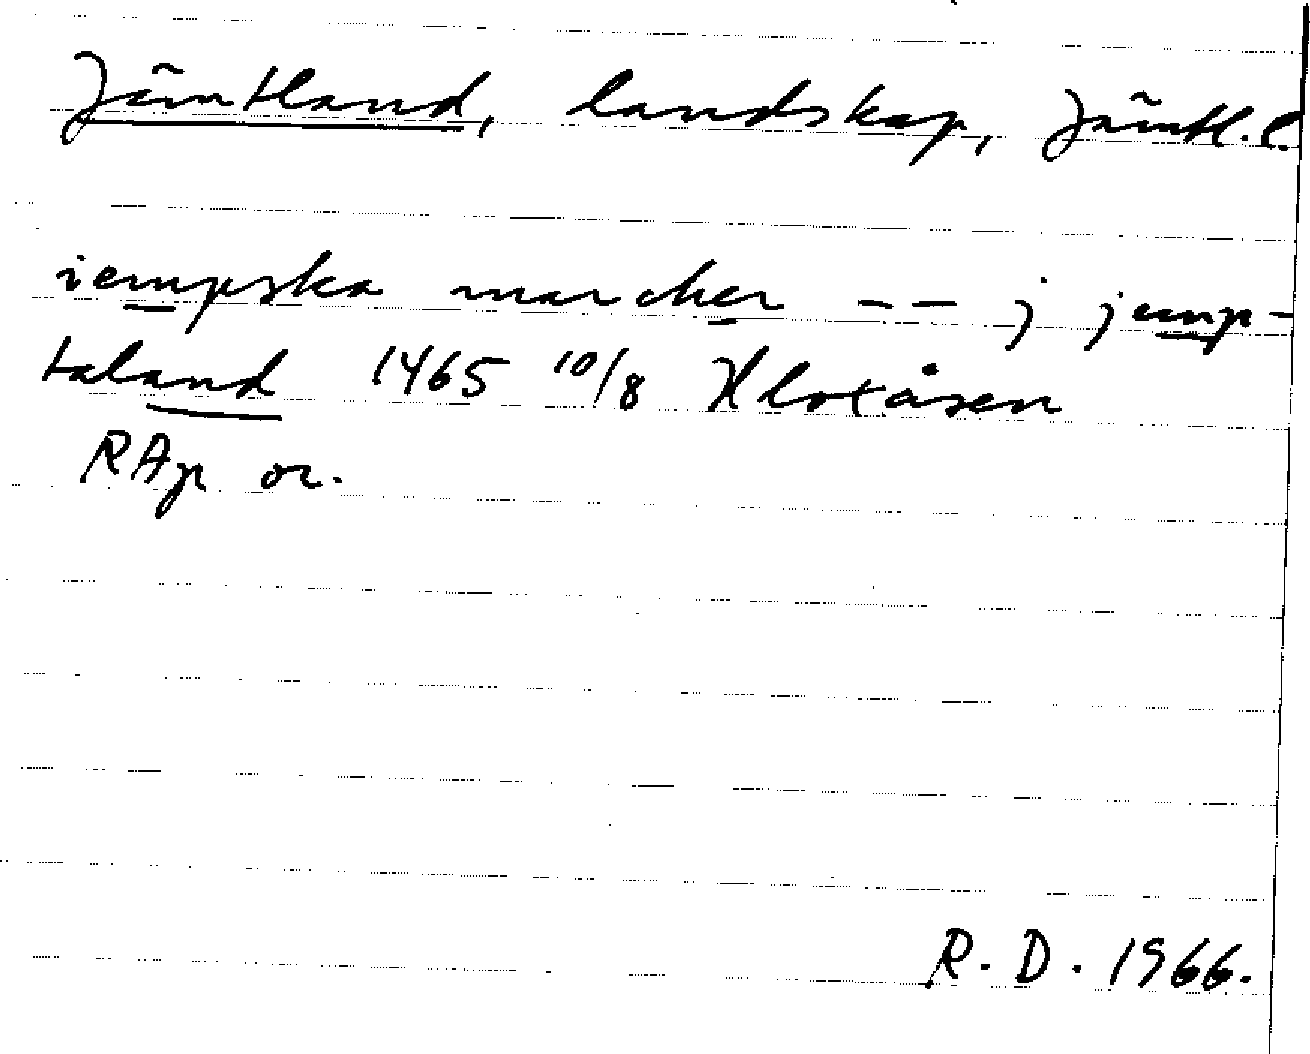 Jämtland, landskap, Jämtl.l.
iempska marcher -- j jemp-
taland 1465 10/8 Kloxåsen
RAp or.
R. D. 1966.